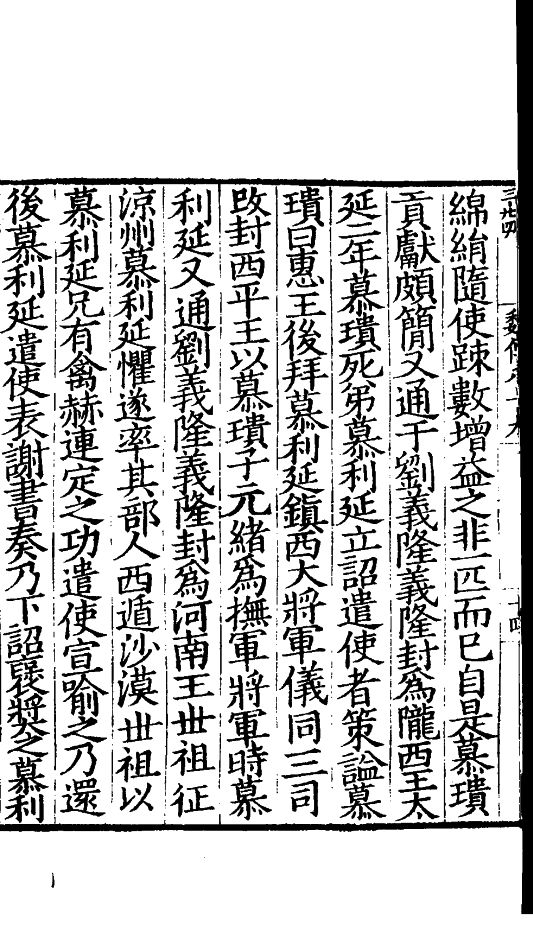 綿絹隨使踈數增益之非一匹而已自是慕璝
貢獻頗簡又通于劉義隆義隆封爲隴西王太
延二年慕璝死弟慕利延立詔遣使者策謚慕
璝曰惠王後拜慕利延鎮西大將軍儀同三司
改封西平王以慕璝子元緒爲撫軍將軍時慕
利延又通劉義隆義隆封爲河南王世祖征
涼州慕利延懼遂率其部人西遁沙漠世祖以
慕利延兄有禽赫連定之功遣使宣喻之乃還
後慕利延遣使表謝書奏乃下詔襃將之慕利